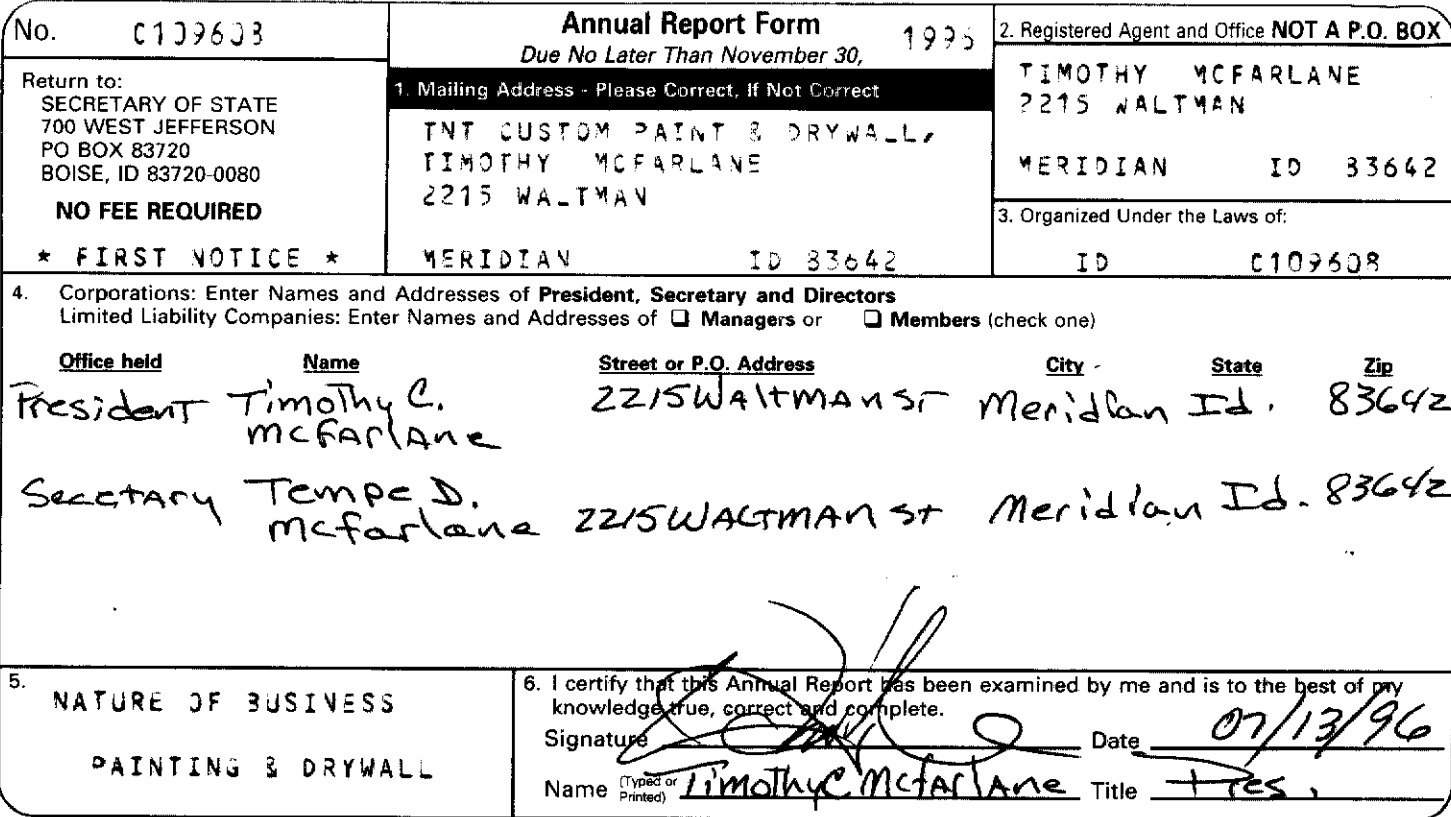 No. C109608
Annual Report Form 1996
Due No Later Than November 30,
Return to:
SECRETARY OF STATE
700 WEST JEFFERSON
PO BOX 83720
BOISE, ID 83720-0080
NO FEE REQUIRED
* FIRST NOTICE *
1. Mailing Address - Please Correct, If Not Correct
TNT CUSTOM PAINT & DRYWALL,
TIMOTHY MCFARLANE
2215 WALTMAN
MERIDIAN ID 83642
2. Registered Agent and Office NOT A P.O. BOX
TIMOTHY MCFARLANE
2215 WALTMAN
MERIDIAN ID 83642
3. Organized Under the Laws of:
ID C109608
4. Corporations: Enter Names and Addresses of President, Secretary and Directors
Limited Liability Companies: Enter Names and Addresses of ❑ Managers or ❑ Members (check one)
Office held Name Street or P.O. Address City State Zip
President Timothy C. 2215 Waltman St Meridian Id. 83642
McFarlane
Secetary Tempe D. 
Mcfarlane 2215 WALTMAN St Meridian Id. 83642
5. NATURE OF BUSINESS
PAINTING & DRYWALL
6. I certify that this Annual Report has been examined by me and is to the best of my
knowledge true, correct and complete.
Signature Date 07/13/96
Name (Typed or Printed) Timothy C McFarlane Title Pres.